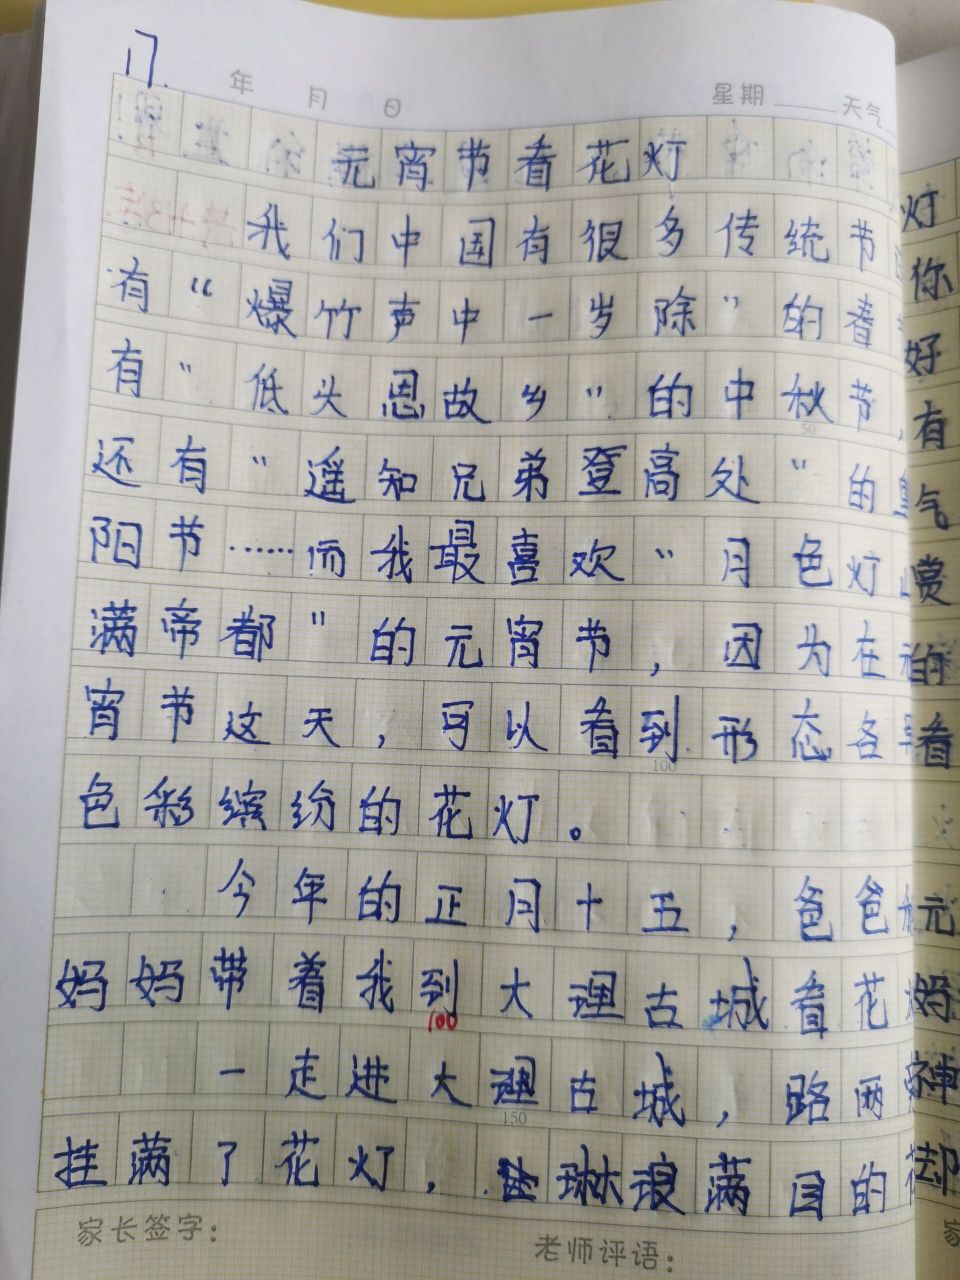 17.
年 月 日 星期 天气
元宵节看花灯
我们中国有很多传统节
有“爆竹声中一岁除”的春
有“低头思故乡”的中秋节，
50
还有“遥知兄弟登高处”的重
阳节……而我最喜欢“月色灯山
满帝都”的元宵节，因为在元
宵节这天，可以看到形态各异
100
色彩缤纷的花灯。
今年的正月十五，爸爸和
妈妈带着我到大理古城看花灯
100
一走进大理古城，路两旁
150
挂满了花灯，琳琅满目的花
家长签字：
老师评语：
灯
你
好
有
气
赏
的
看
元
妈
神
却
家